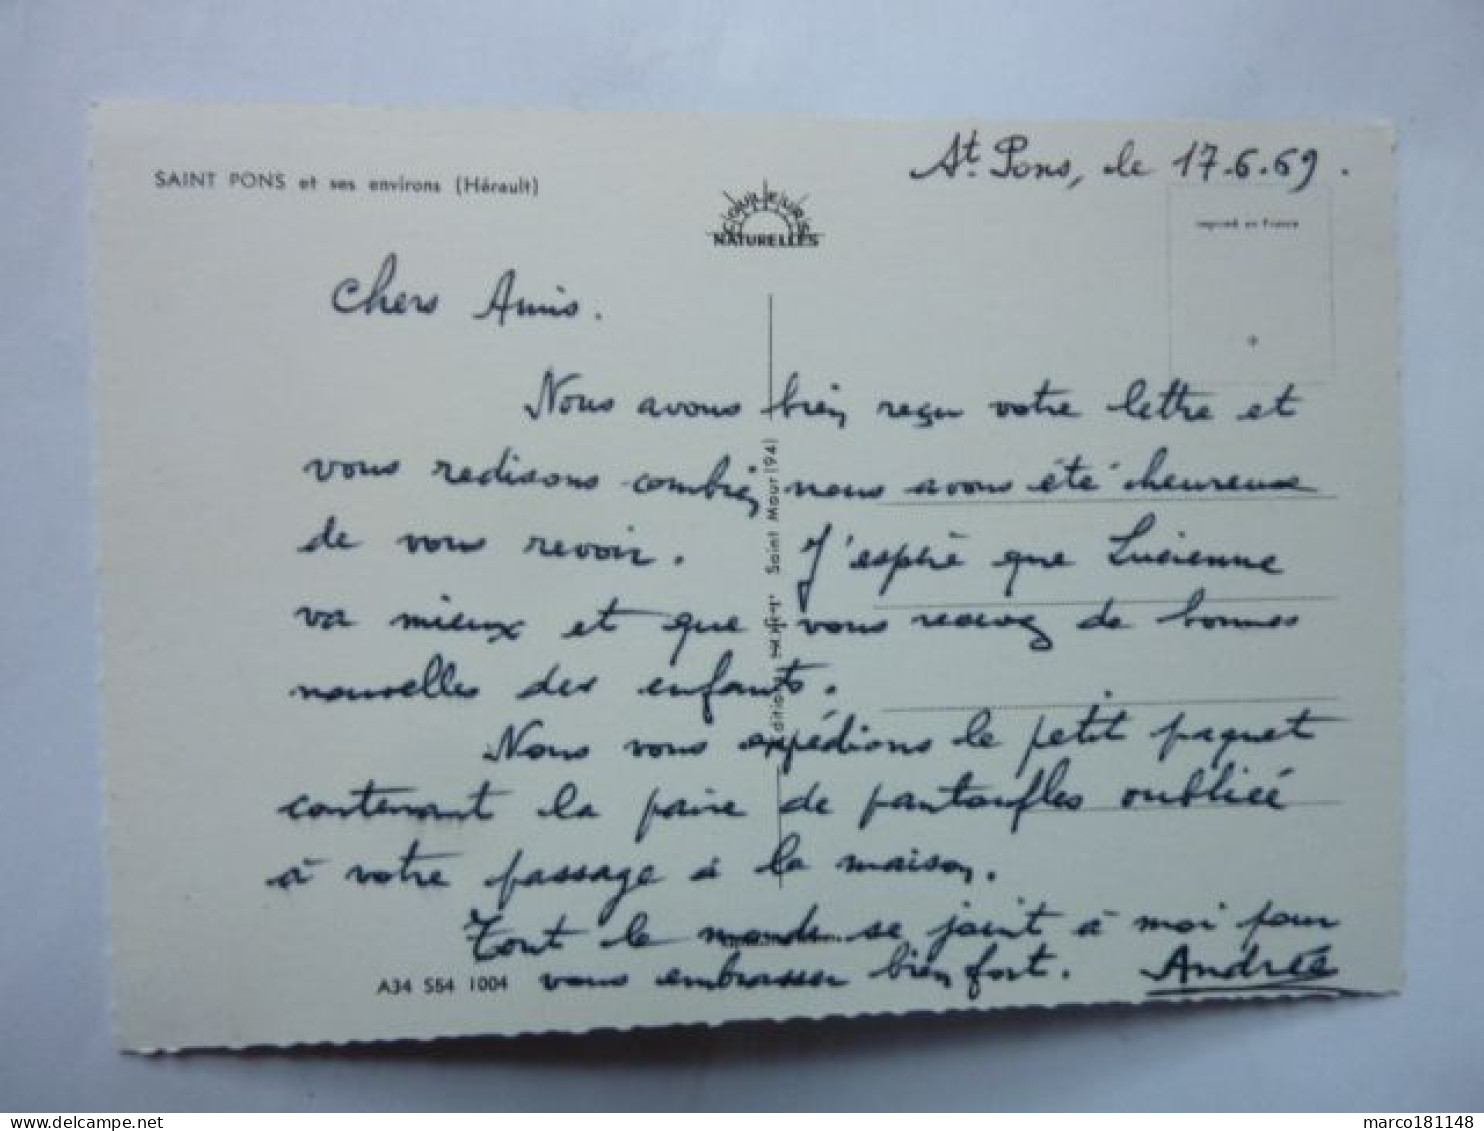 St. Pons, le 17.6.69.
SAINT PONS et ses environs (Hérault)
COULEURS
NATURELLES
imprimé en France
Chers Amis.
Nous avons bien reçu votre lettre et
vous redisons combien nous avons été heureux
de vous revoir. J'espère que Lucienne
va mieux et que vous recevez de bonnes
nouvelles des enfants.
Nous vous expédions le petit paquet
contenant la paire de pantoufles oubliée
à votre passage à la maison.
Tout le monde se joint à moi pour
vous embrasser bien fort. Andrée
A34 S54 1004
Saint Maur (94)
marco181148
delcampe.net